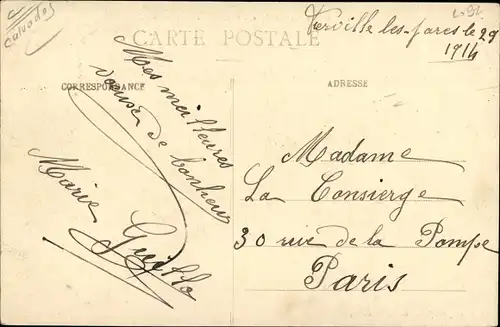 Calvados
CARTE POSTALE
les 29
1914
CORRESPONDANCE
ADRESSE
Mes meilleures
de bonheur
Marie
Madame
La Consierge
30 rue de la Pompe
Paris